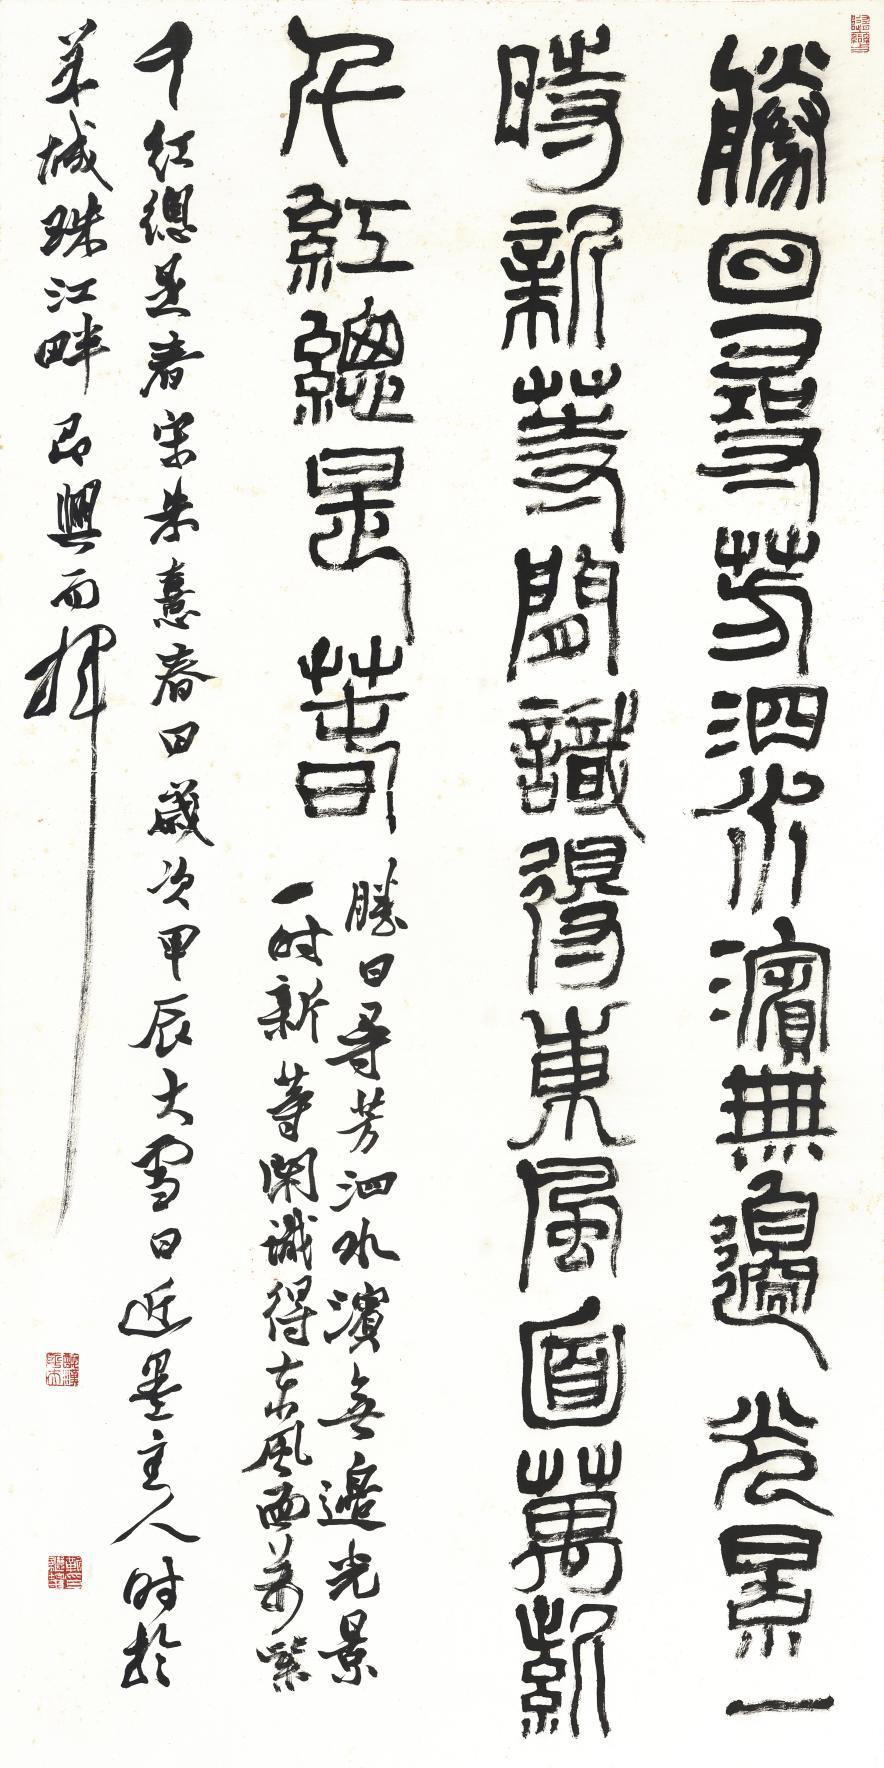 勝日尋芳泗水濱無邊光景一
時新等閒識得東風面萬紫
千紅總是春
勝日尋芳泗水濱無邊光景
一时新等閑識得東風面萬紫
千紅總是春宋朱熹春日歲次甲辰大雪日近墨主人时於
羊城珠江畔即興而揮